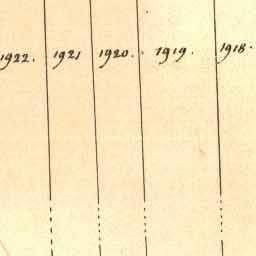 1922. 1921 1920. 1919. 1918.